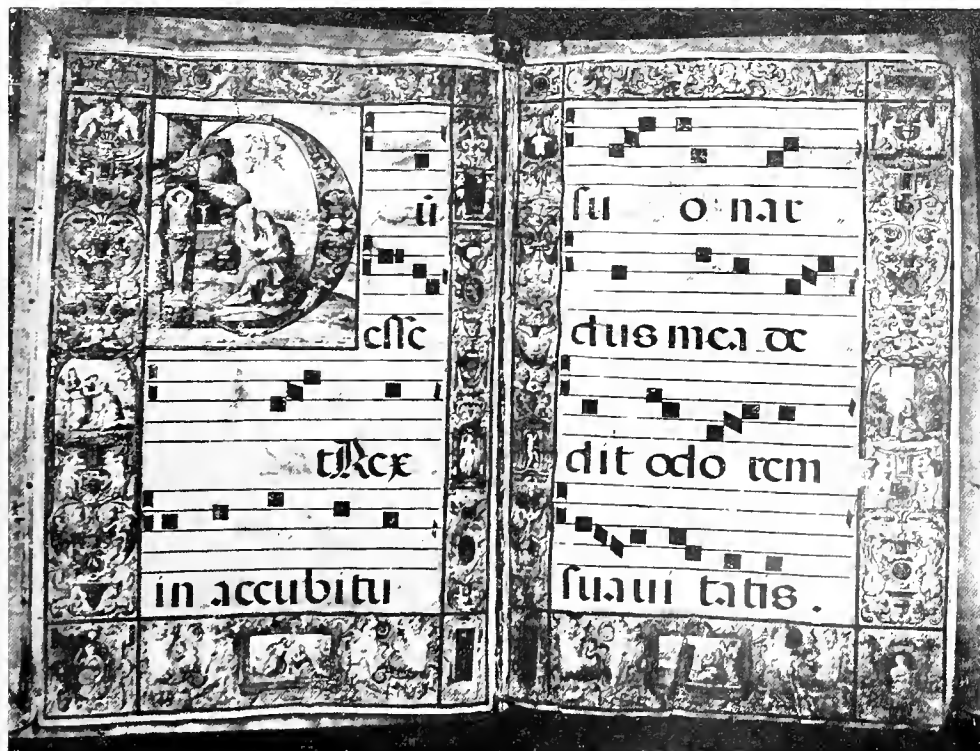 Dū
esse
t Rex
in accubitu
ſu o nar
dus mea de
dit odo rem
ſuaui tatis .